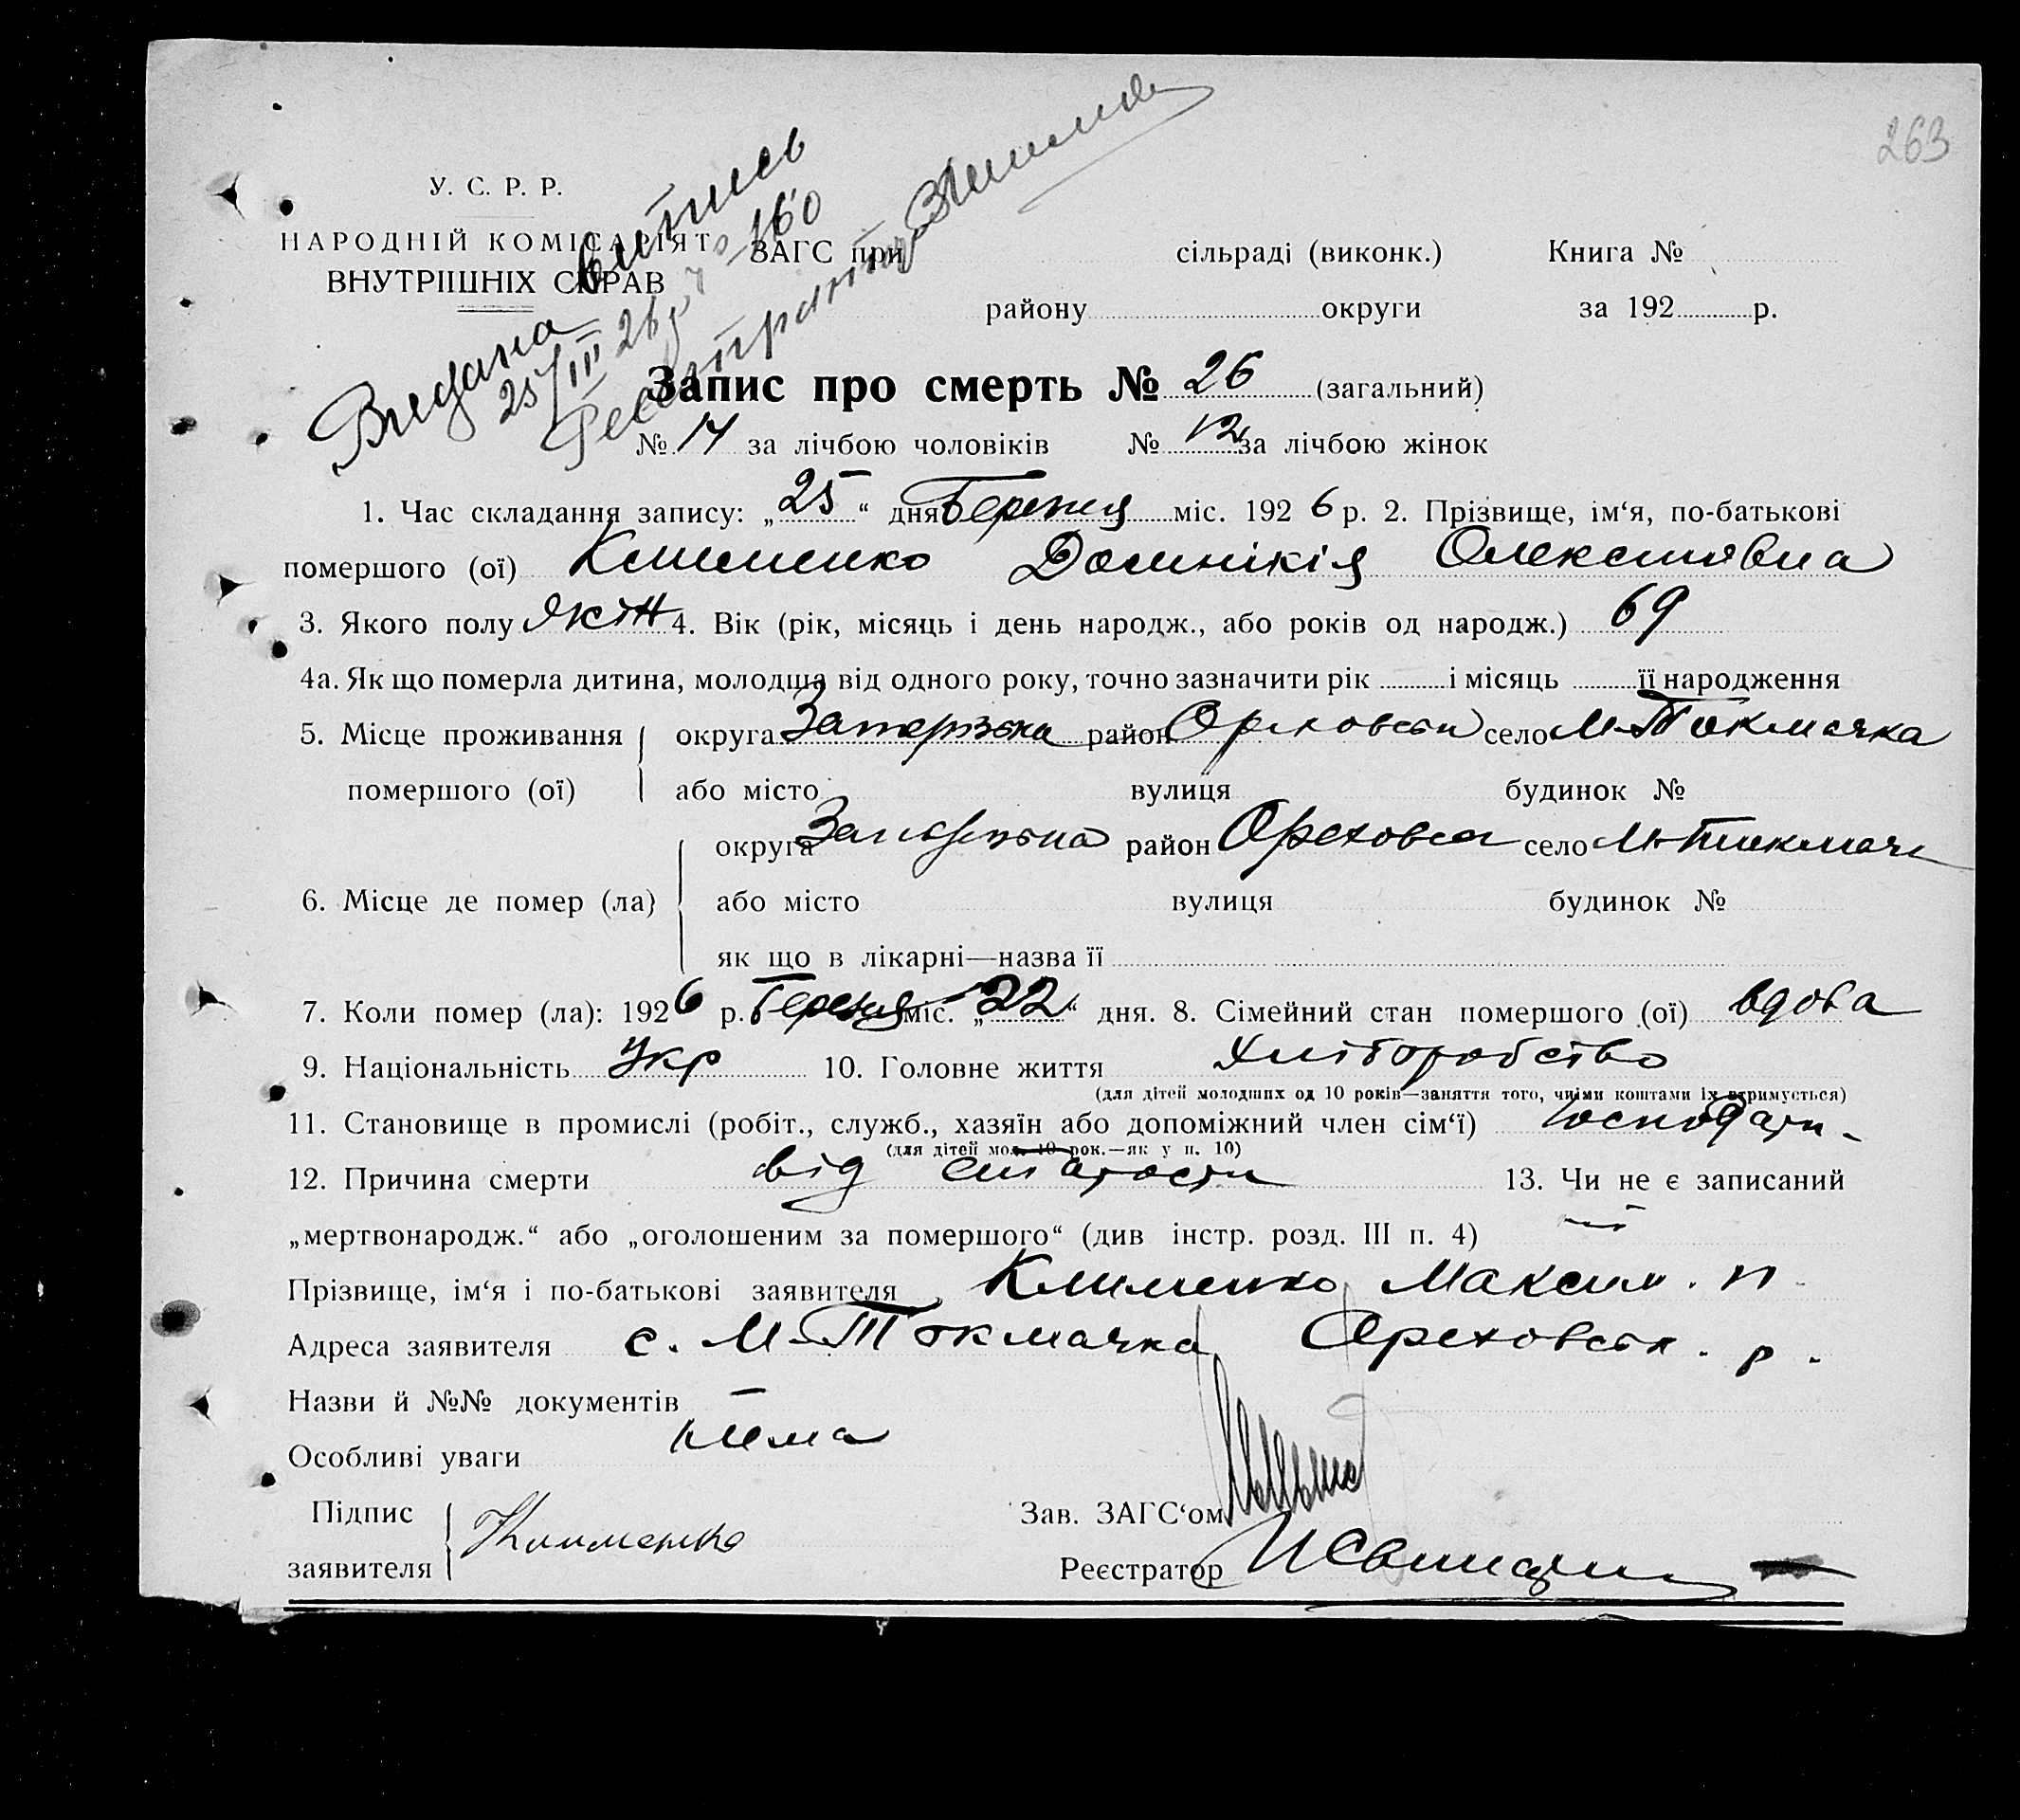 263
У. С. Р. Р.
НАРОДНІЙ КОМІСАРІЯТ
ВНУТРІШНІХ СПРАВ
Видана витпись
25/III 26р № 160
ЗАГС при сільраді (виконк.) Книга №
району округи за 192 р.
Запис про смерть № 26 (загальний)
№ 14 за лічбою чоловіків № 12 за лічбою жінок
1. Час складання запису: „25“ дня Березня міс. 1926 р. 2. Прізвище, ім‘я, по-батькові
помершого (ої) Клименко Домнікія Олексіївна
3. Якого полу жін 4. Вік (рік, місяць і день народж., або років од народж.) 69
4а. Як що померла дитина, молодша від одного року, точно зазначити рік і місяць її народження
5. Місце проживання округа Запорізька район Оріховськ село М-Токмачка
помершого (ої) або місто вулиця будинок №
округа Запорізька район Ореховск село М-Токмачк
6. Місце де помер (ла) або місто вулиця будинок №
як що в лікарні—назва її
7. Коли помер (ла): 1926 р. Березня міс. „22“ дня. 8. Сімейний стан помершого (ої) вдова
9. Національність Укр 10. Головне життя Хліборобство
(для дітей молодших од 10 років—заняття того, чиїми коштами їх втримується)
11. Становище в промислі (робіт., служб., хазяїн або допоміжний член сім‘ї) господарк-
(для дітей мол. 10 рок.—як у п. 10)
12. Причина смерти від старости 13. Чи не є записаний
„мертвонародж.“ або „оголошеним за помершого“ (див інстр. розд. III п. 4) ні
Прізвище, ім‘я і по-батькові заявителя Клименко Максим. П
Адреса заявителя с. М-Токмачка Ореховськ. р.
Назви й №№ документів —
Особливі уваги нема
Підпис Клименко Зав. ЗАГС‘ом
заявителя Реєстратор